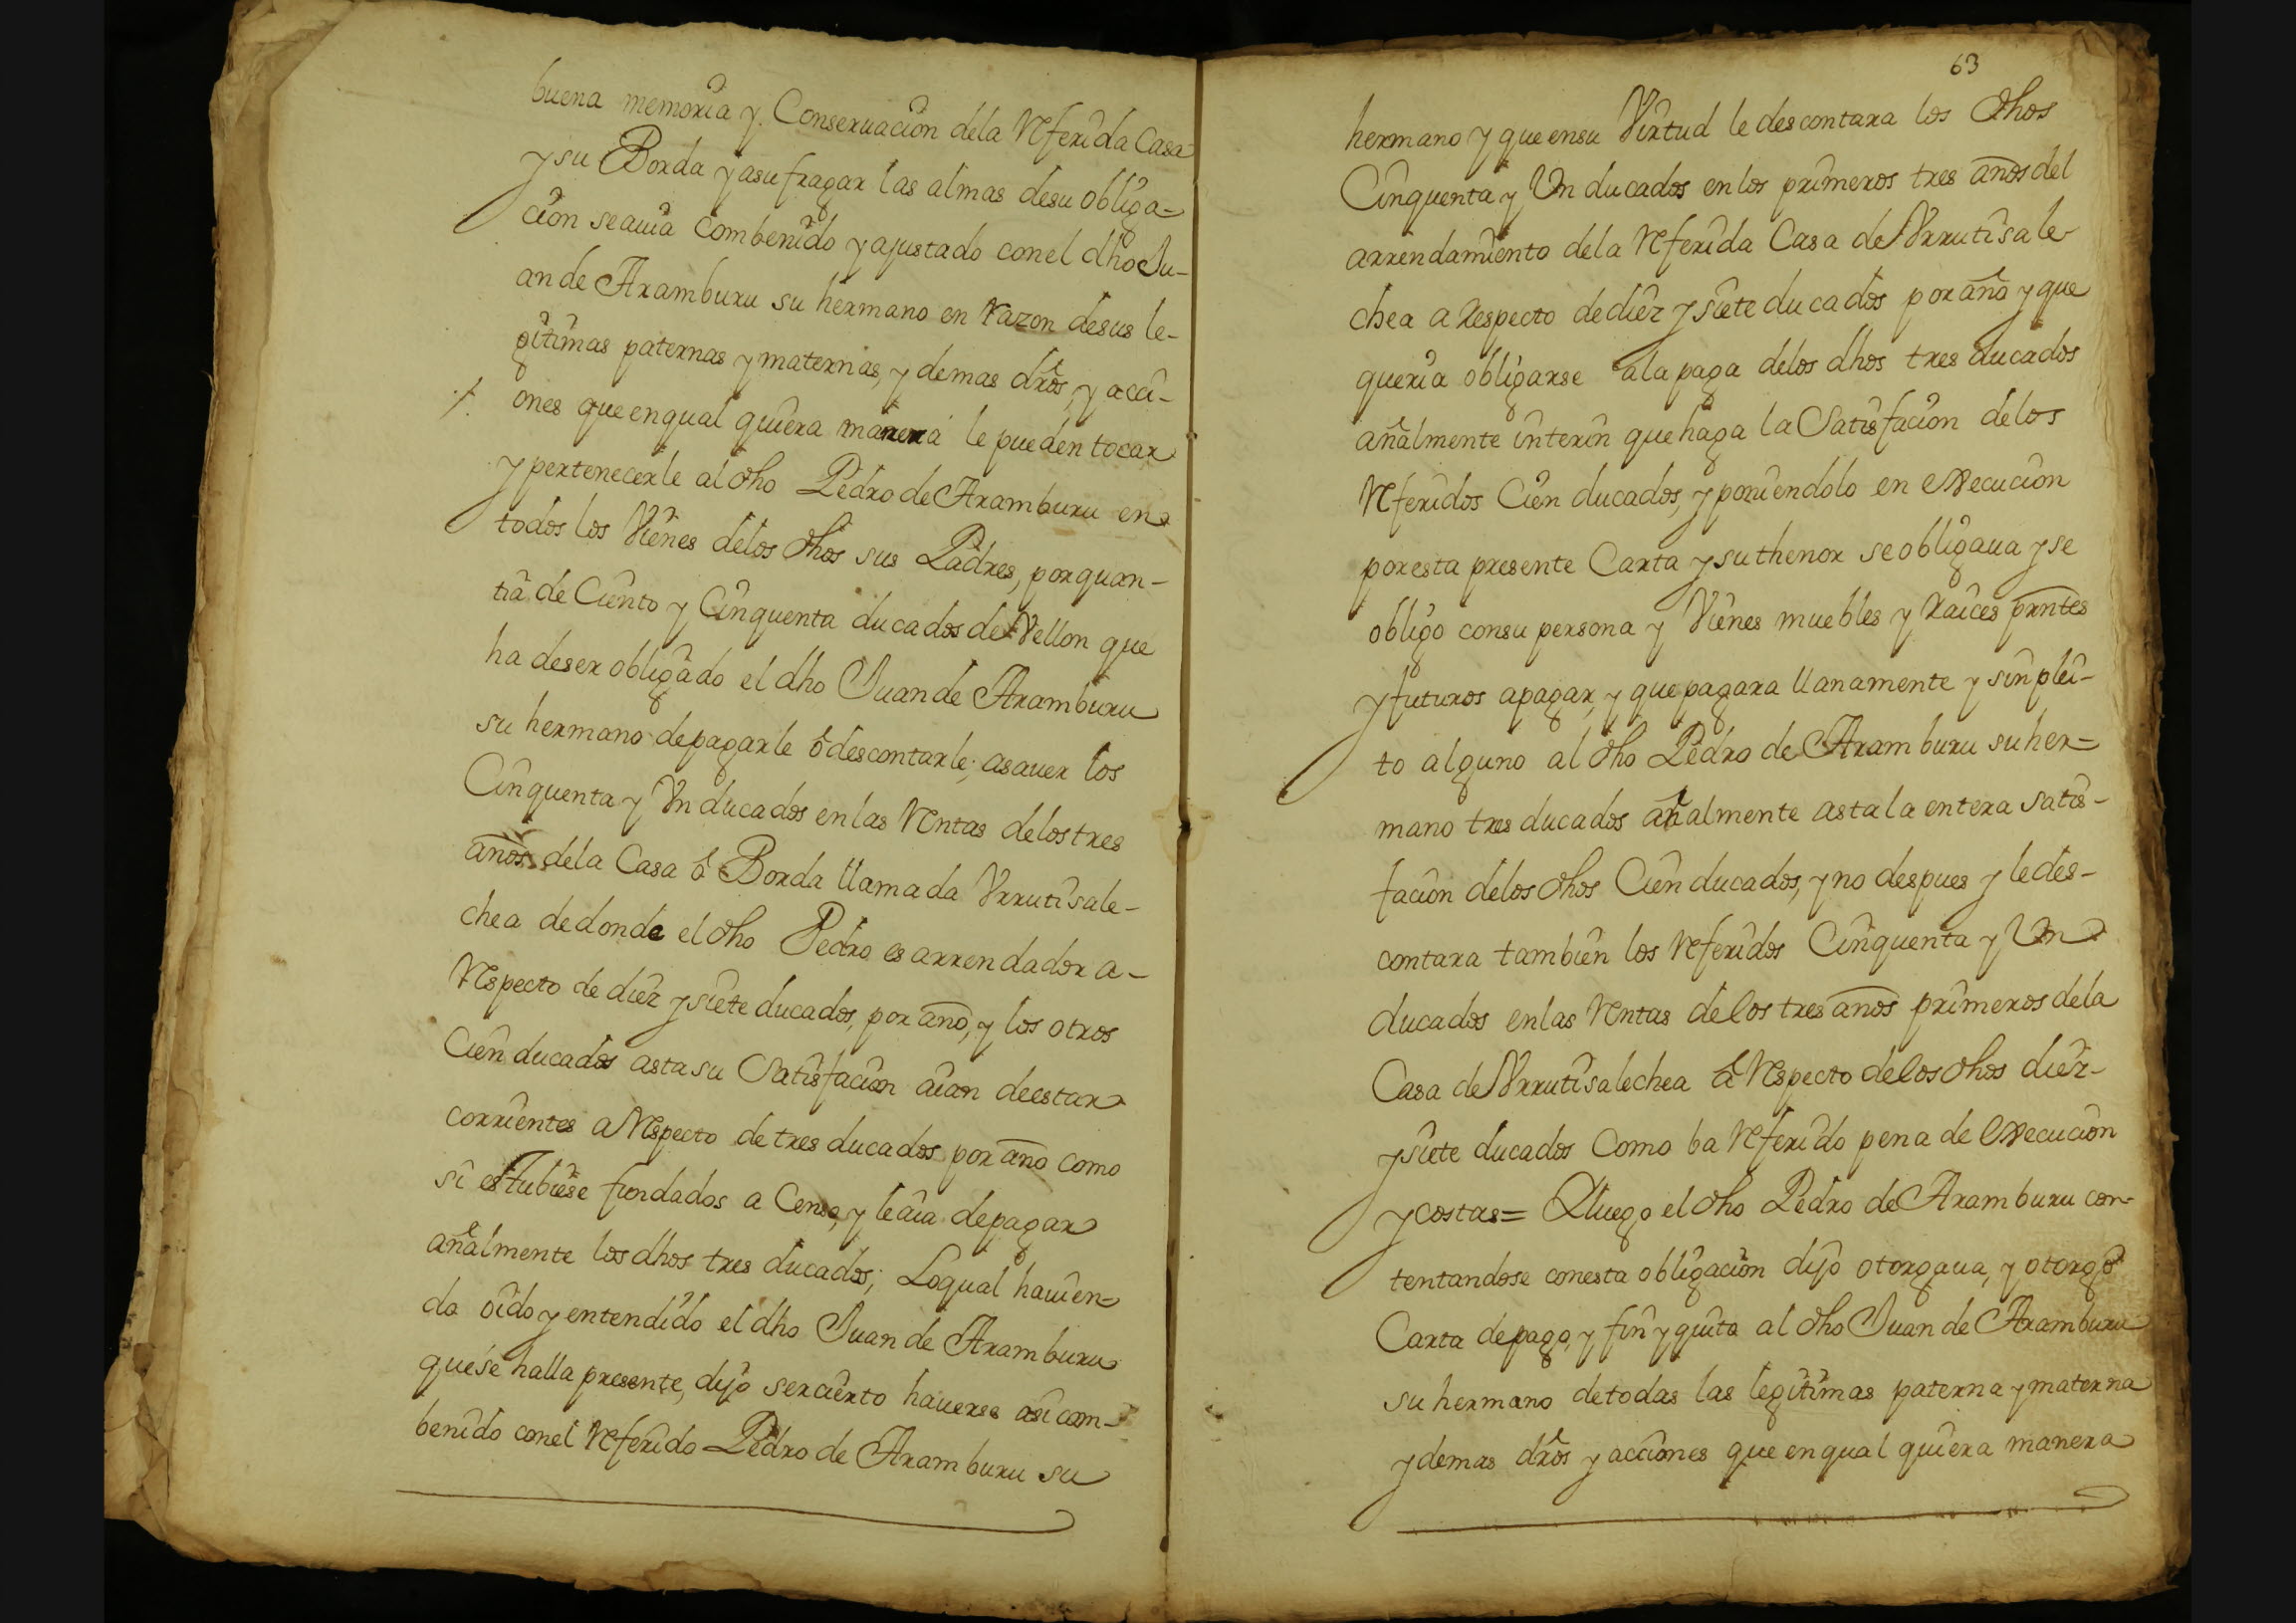 buena memoria y Conseruacion dela Referida Casa
y su Borda y asufragar las almas desu obliga=
cion seauia combenido y ajustado conel dho Ju-
an de Aramburu su hermano en Razon desus le-
gitimas paternas y maternas, y demas dros, y acci-
ones que enqual quiera manera le pueden tocar
y pertenecerle al dho Pedro de Aramburu en
todos los Vienes delos dhos sus Padres, por quan-
tia de Ciento y Cinquenta ducados de Vellon que
ha deser obligado el dho Juan de Aramburu
su hermano depagarle ô descontarle; asauer los
Cinquenta y Vn ducados en las Rentas delos tres
años dela Casa ô Borda llamada Vrrutisale-
chea dedonde el dho Pedro es arrendador a-
Respecto de diez y siete ducados, por año, y los otros
Cien ducados asta su Satisfacion aian deestar
corrientes a Respecto de tres ducados por año como
si estubiese fundados a Censo, y le aia depagar
añalmente los dhos tres ducados; Loqual hauien-
do oido y entendido el dho Juan de Aramburu
que se halla presente, dijo sercierto hauerse asi com-
benido conel Referido Pedro de Aramburu su
63
hermano y que ensu Virtud le descontara los dhos
Cinquenta y Vn ducados en los primeros tres años del
arrendamiento dela Referida Casa de Vrrutisale-
chea a Respecto dediez y siete ducados por año y que
queria obligarse ala paga delos dhos tres ducados
añalmente interin que haga la Satisfacion delos
Referidos Cien ducados, y poniendolo en execucion
por esta presente Carta y su thenor se obligaua y se
obligo consu persona y Vienes muebles y Raices prntes
y futuros apagar, y que pagara llanamente y sin plei-
to alguno al dho Pedro de Aramburu su her=
mano tres ducados añalmente asta la entera satis-
facion delos dhos Cien ducados, y no despues y le des-
contara tambien los Referidos Cinquenta y Vn
ducados en las Rentas delos tres años primeros dela
Casa de Vrrutisalechea â Respecto delos dhos diez-
y siete ducados Como ba Referido pena de execucion
y costas= Y luego el dho Pedro de Aramburu con-
tentandose conesta obligacion dijo otorgaua, y otorgo
Carta depago, y fin y quito al dho Juan de Aramburu
su hermano detodas las legitimas paterna y materna
y demas dros y acciones que enqual quiera manera